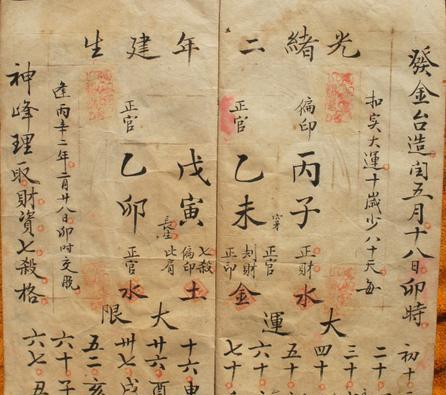 光緒二年建生
發金台造閏五月十八日卯時
扣实大運十歲少八十天每
偏印
丙子
正財
水
正官
乙未
正官
刦財
正印
金
戊寅
長生
七殺
偏印
比肩
土
正官
乙卯
正官
水
大運
初十
二十
三十
四十
五十
六十
七十
大限
十六申
廿六酉
卅七戌
五二亥
六十子
六七丑
逢丙辛二年二月廿八日卯时交脱
神峰理取財資七殺格